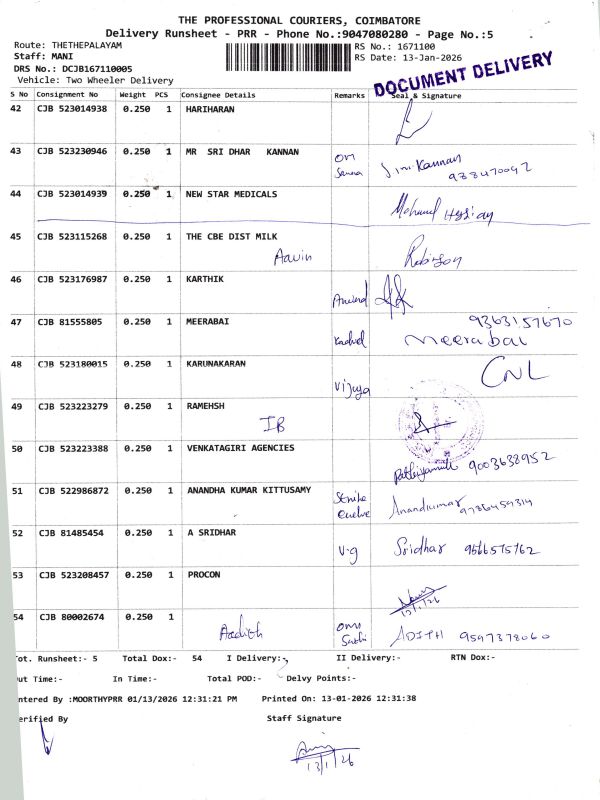 THE PROFESSIONAL COURIERS, COIMBATORE
Delivery Runsheet - PRR - Phone No.:9047080280 - Page No.:5
Route: THETHEPALAYAM
RS No.: 1671100
Staff: MANI
RS Date: 13-Jan-2026
DRS No.: DCJB167110005
Vehicle: Two Wheeler Delivery
DOCUMENT DELIVERY
S No Consignment No Weight PCS Consignee Details Remarks Seal & Signature
42 CJB 523014938 0.250 1 HARIHARAN
43 CJB 523230946 0.250 1 MR SRI DHAR KANNAN
Kannan
44 CJB 523014939 0.250 1 NEW STAR MEDICALS
45 CJB 523115268 0.250 1 THE CBE DIST MILK
Aavin
46 CJB 523176987 0.250 1 KARTHIK
47 CJB 81555805 0.250 1 MEERABAI
9363157670
meerabai
48 CJB 523180015 0.250 1 KARUNAKARAN
Vijaya
49 CJB 523223279 0.250 1 RAMEHSH
IB
50 CJB 523223388 0.250 1 VENKATAGIRI AGENCIES
9003638952
51 CJB 522986872 0.250 1 ANANDHA KUMAR KITTUSAMY
Anandkumar
52 CJB 81485454 0.250 1 A SRIDHAR
V.g Sridhar 9566575762
53 CJB 523208457 0.250 1 PROCON
12/1/26
54 CJB 80002674 0.250 1
Aadith
ADITH 9597378060
ot. Runsheet:- 5 Total Dox:- 54 I Delivery:- II Delivery:- RTN Dox:-
ut Time:- In Time:- Total POD:- Delvy Points:-
ntered By :MOORTHYPRR 01/13/2026 12:31:21 PM Printed On: 13-01-2026 12:31:38
erified By Staff Signature
13/1/26